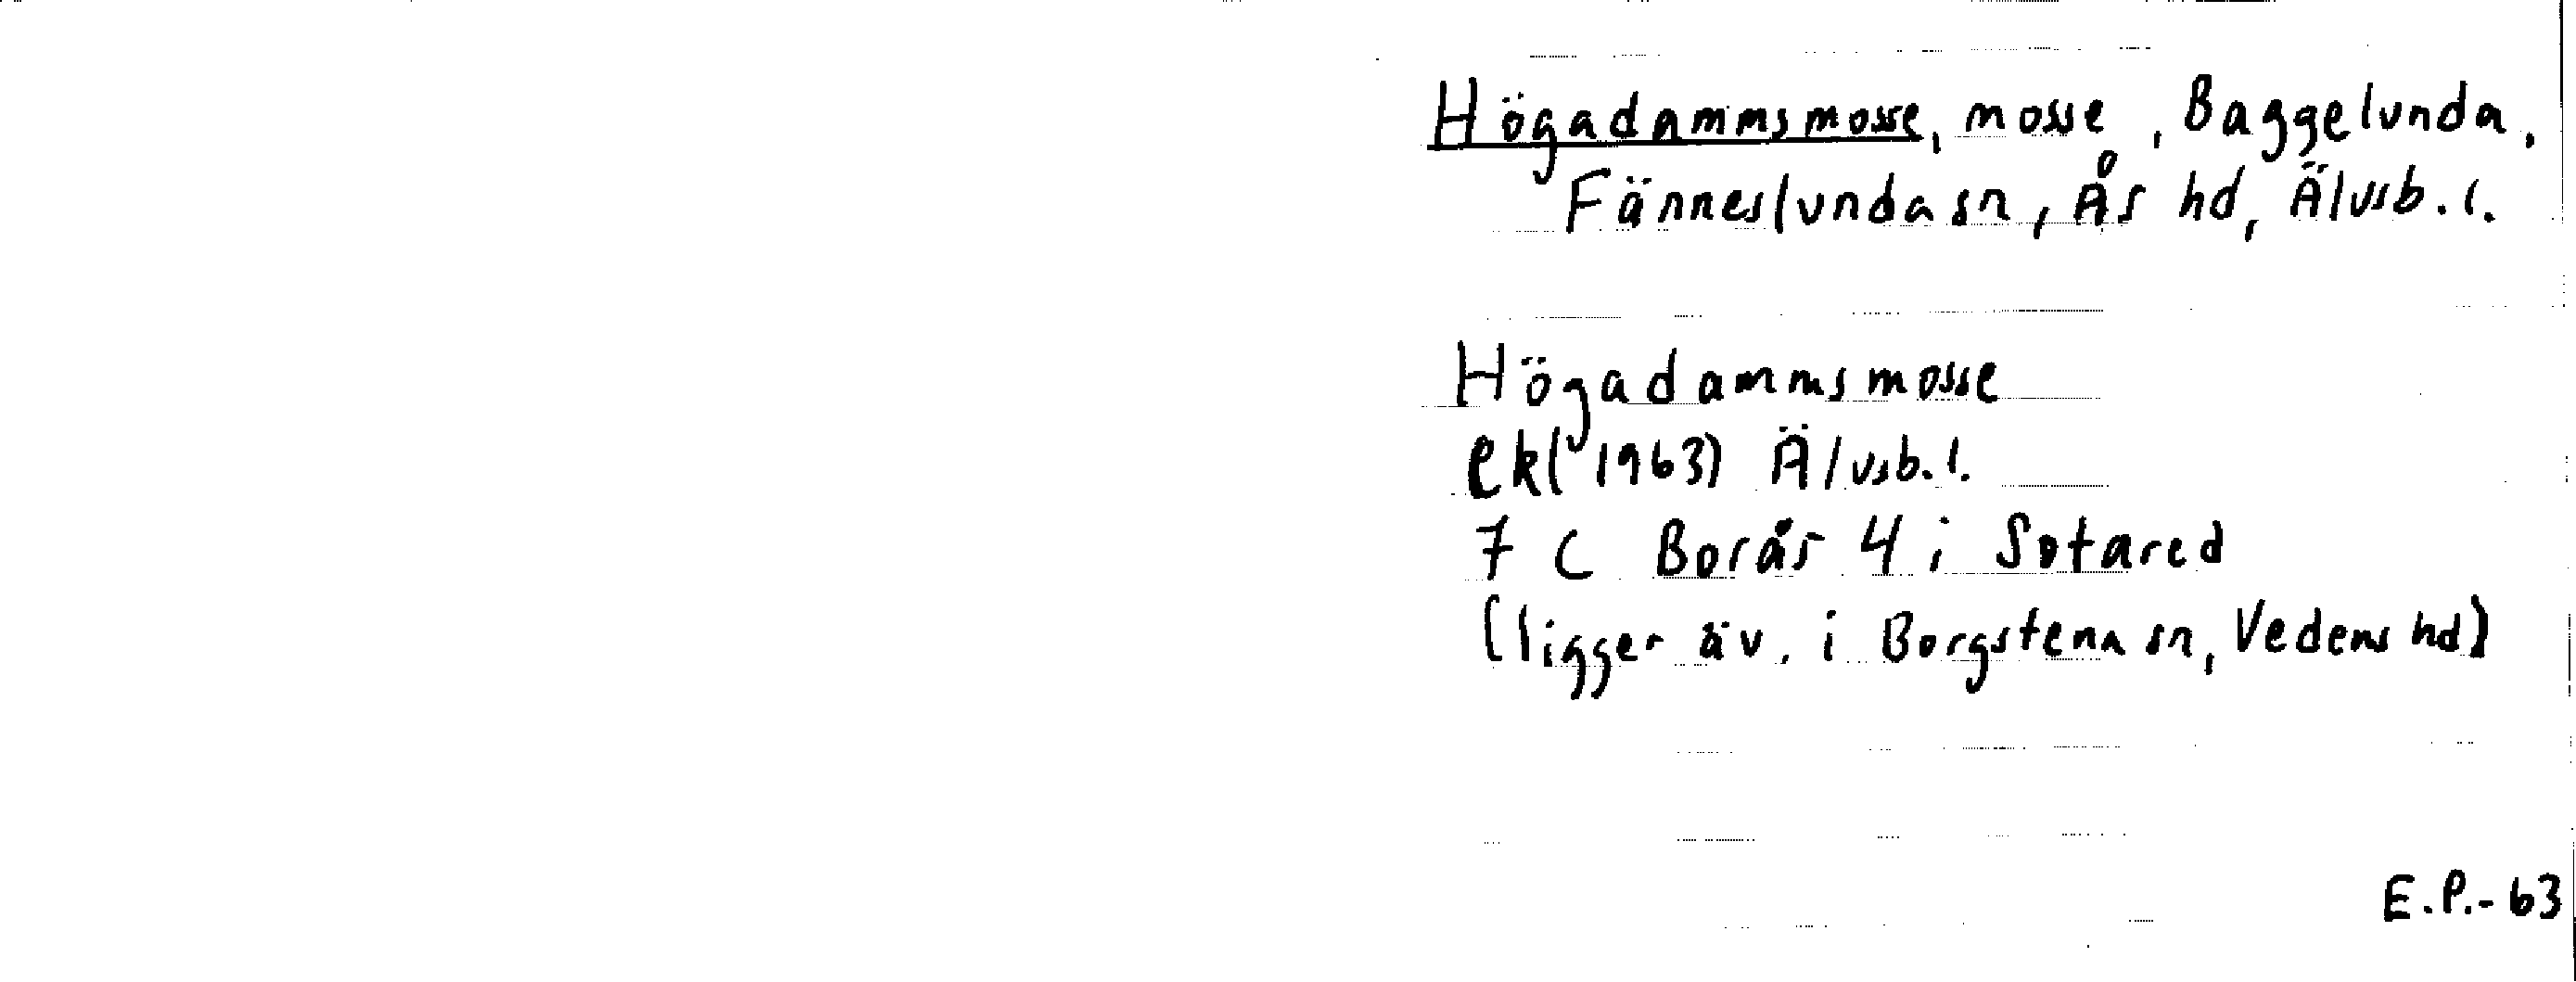 Högadammsmosse, mosse, Baggelunda,
Fänneslunda sn, Ås hd, Älvsb. l.
Högadammsmosse
ek (1963) Älvsb. l.
7 C Borås 4 i Sotared
(ligger äv. i Borgstena sn, Vedens hd)
E.P.-63